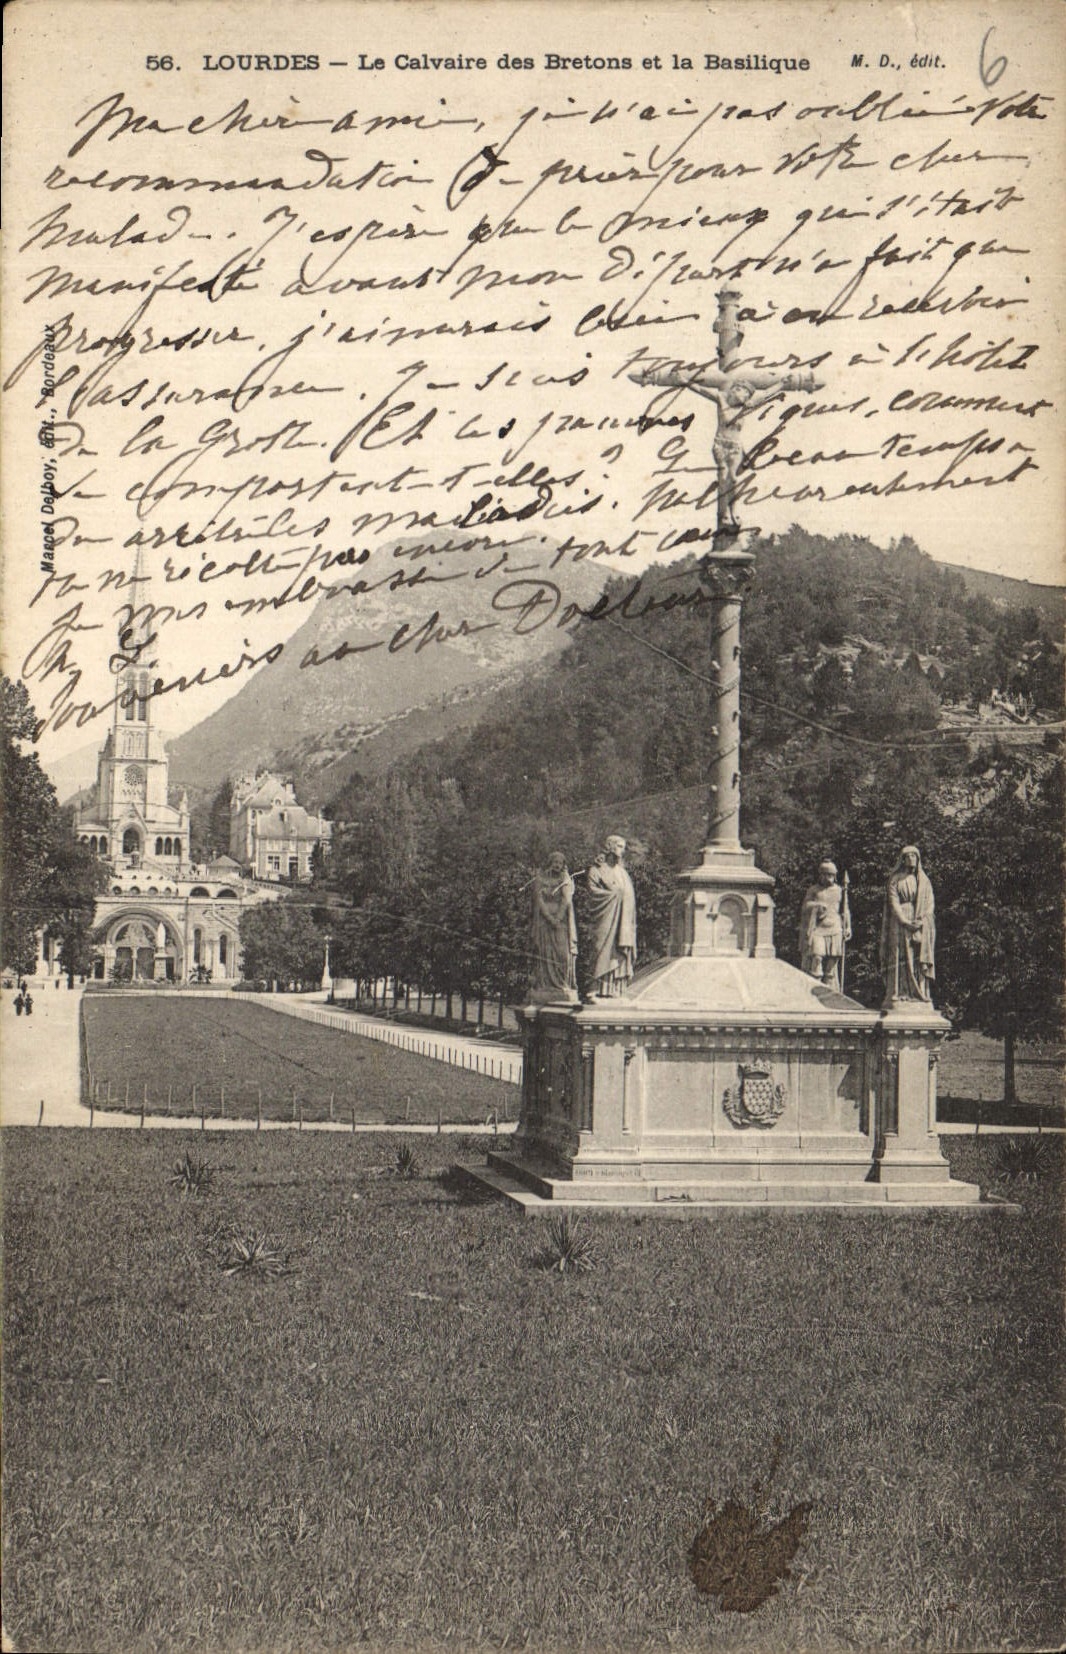 56. LOURDES — Le Calvaire des Bretons et la Basilique M. D., édit. 6
Ma chère amie, je n'ai pas oublié votre
recommandation de prier pour votre cher
malade. J'espère que le mieux qui s'était
manifesté avant mon départ n'a fait que
progresser, j'aimerais bien à en recevoir
l'assurance. Je suis toujours à l'hôtel
de la Grotte. Et les pauvres vignes, comment
se comportent-elles? Le beau temps a
du arrêter les maladies. Malheureusement
on ne récolte pas encore.
Je vous embrasse de tout cœur
L.
Souvenirs au cher Docteur.
Marcel Delboy, édit., Bordeaux